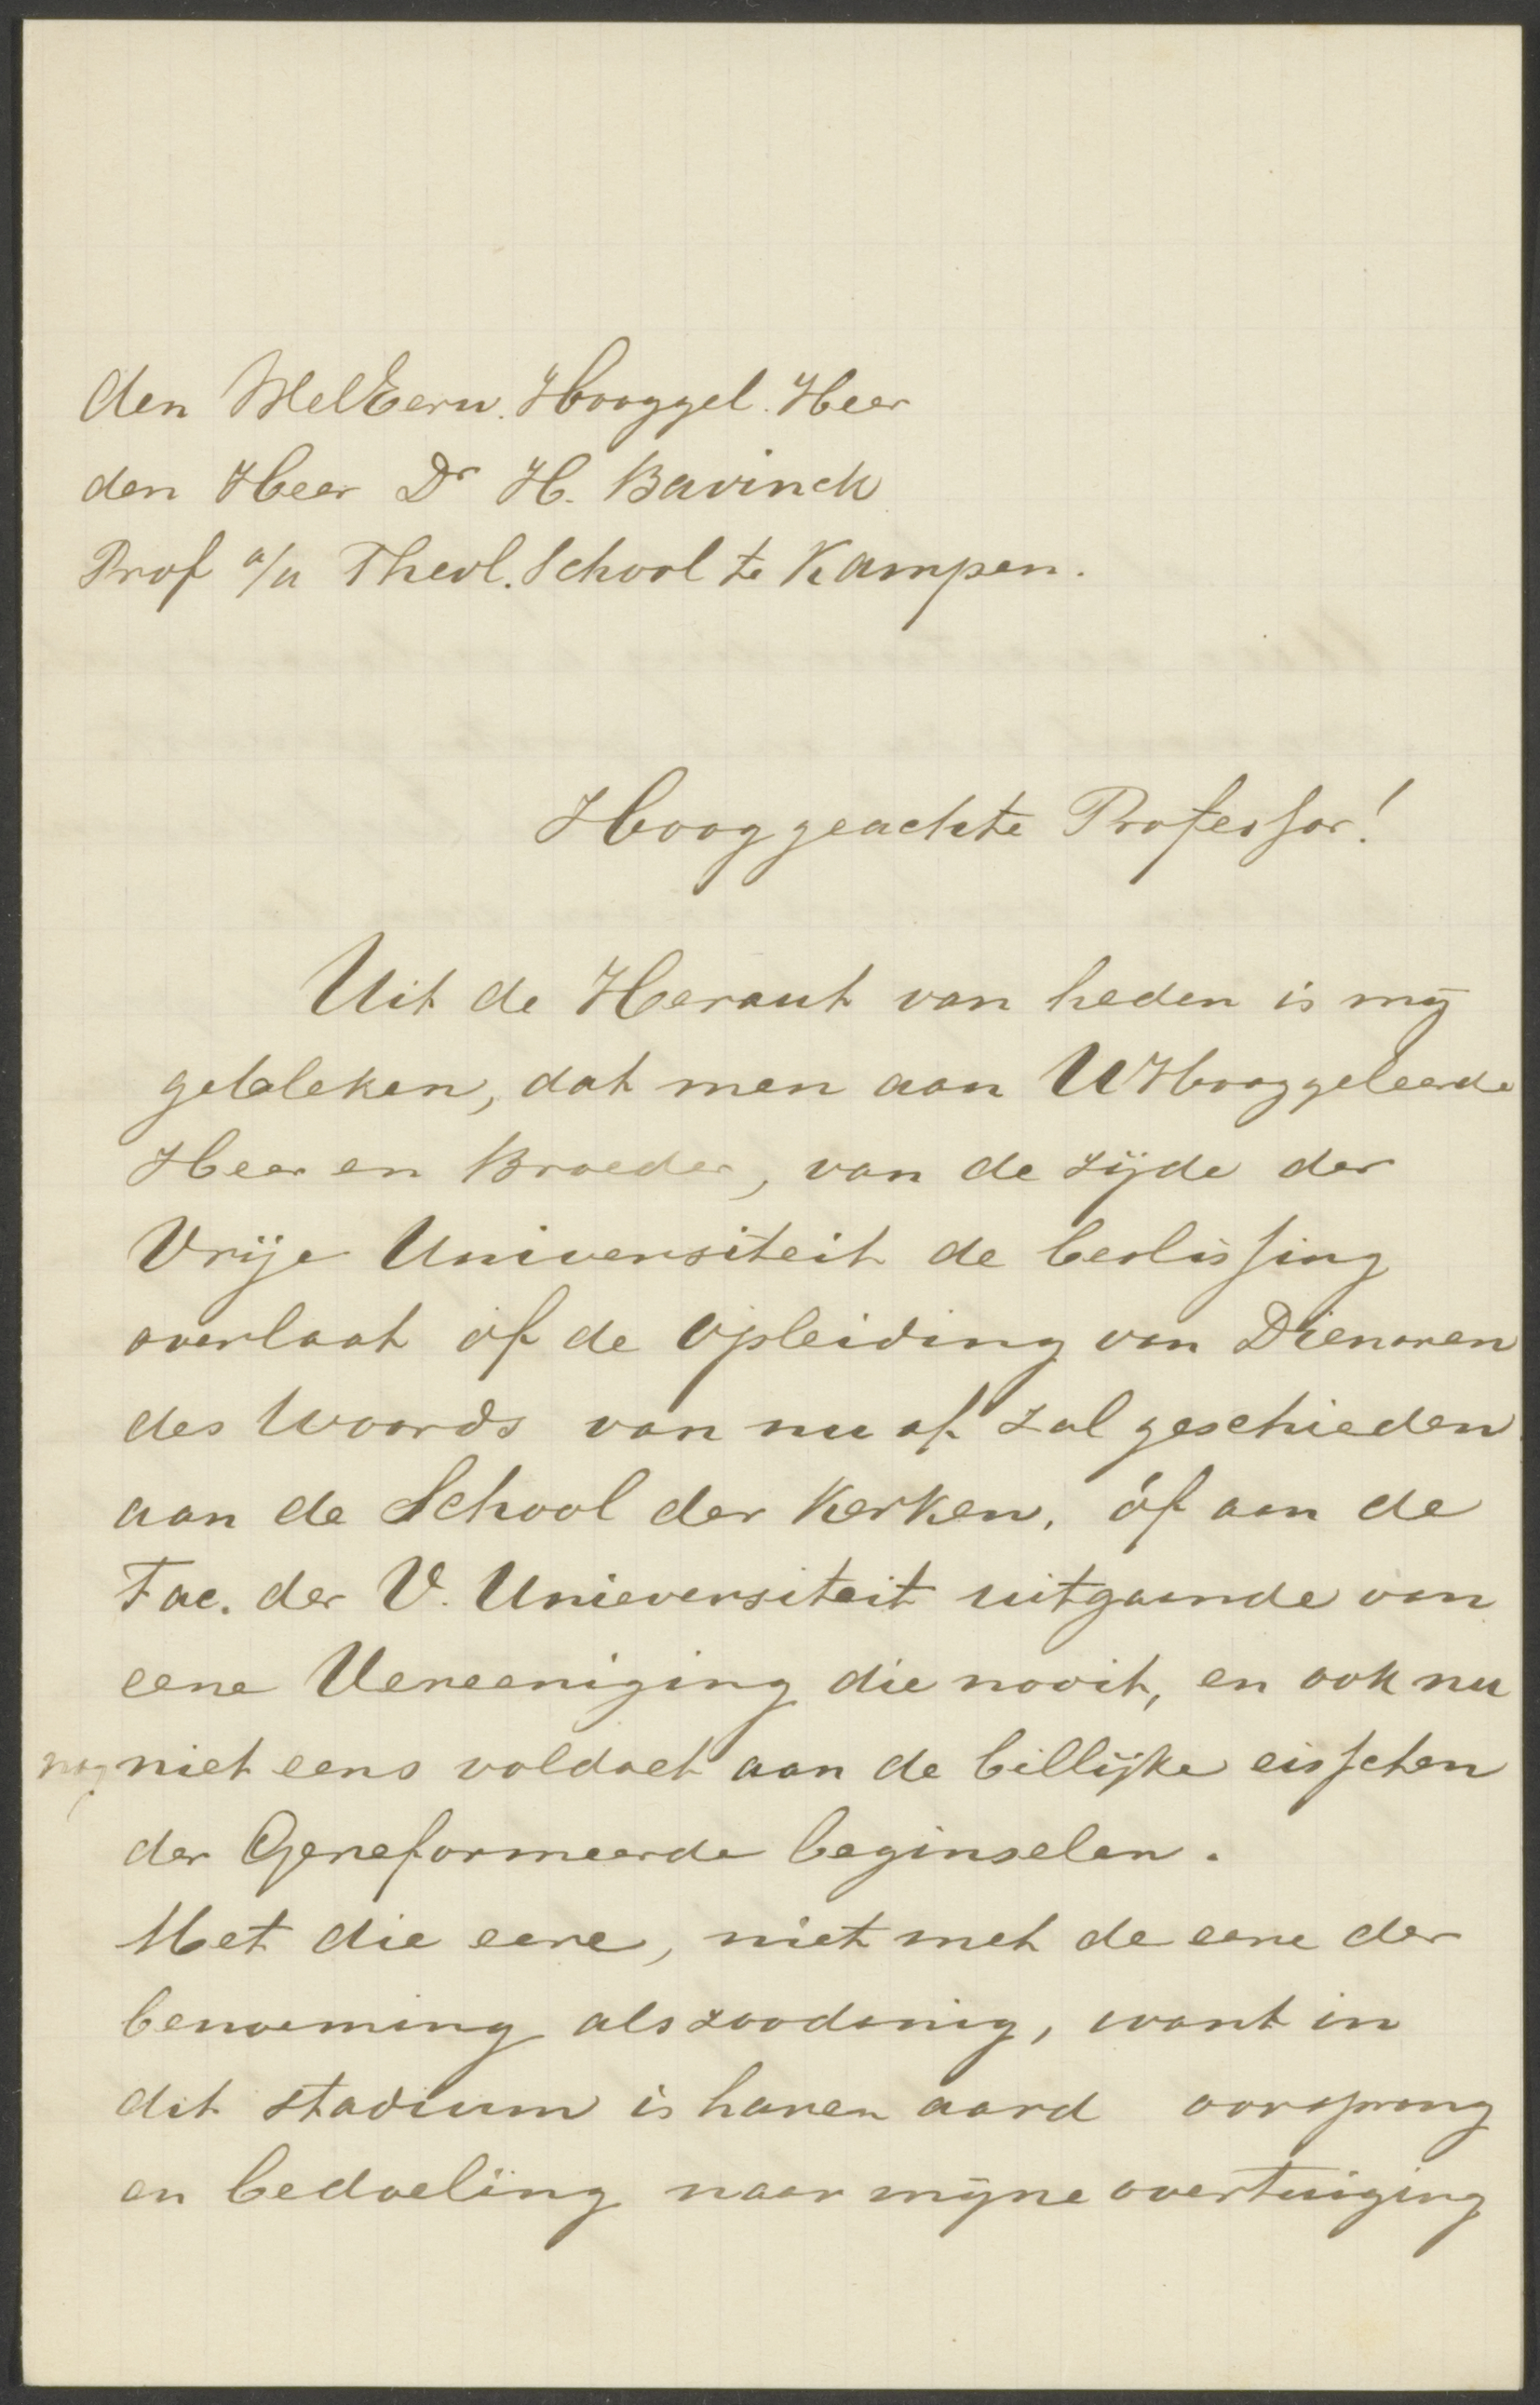 den WelEerw. Hooggel. Heer
den Heer Dr H. Bavinck
Prof a/u Theol. School te Kampen.
Hooggeachte Professor!
Uit de Heraut van heden is mij
gebleken, dat men aan UHooggeleerde
Heer en Broeder, van de zijde der
Vrije Universiteit de beslissing
overlaat óf de opleiding van Dienaren
des Woords van nu af zal geschieden
aan de School der Kerken, óf aan de
Fac. der V. Unieversiteit uitgaande van
eene Vereeniging die nooit, en ook nu
nog niet eens voldoet aan de billijke eisschen
der Gereformeerde beginselen.
Met die eere, niet met de eere der
benoeming alszoodanig, want in
dit stadium is haren aard oorsprong
en bedoeling naar mijne overtuiging